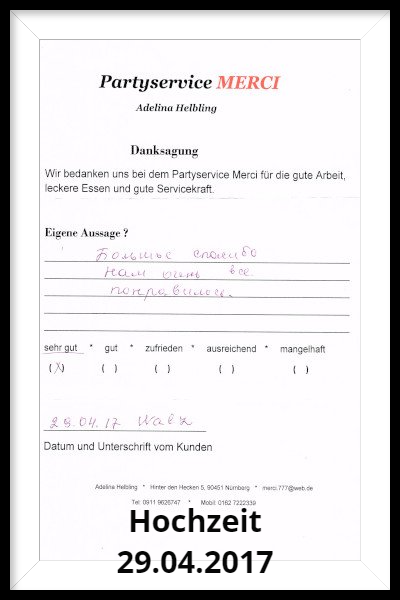 Partyservice MERCI
Adelina Helbling
Danksagung
Wir bedanken uns bei dem Partyservice Merci für die gute Arbeit,
leckere Essen und gute Servicekraft.
Eigene Aussage ?
Большое спасибо
нам очень все
понравилось.
sehr gut * gut * zufrieden * ausreichend * mangelhaft
(X) ( ) ( ) ( ) ( )
29.04.17 Walz
Datum und Unterschrift vom Kunden
Adelina Helbling * Hinter den Hecken 5, 90451 Nürnberg * merci.777@web.de
Tel: 0911 9626747 * Mobil: 0162 7222339
Hochzeit
29.04.2017